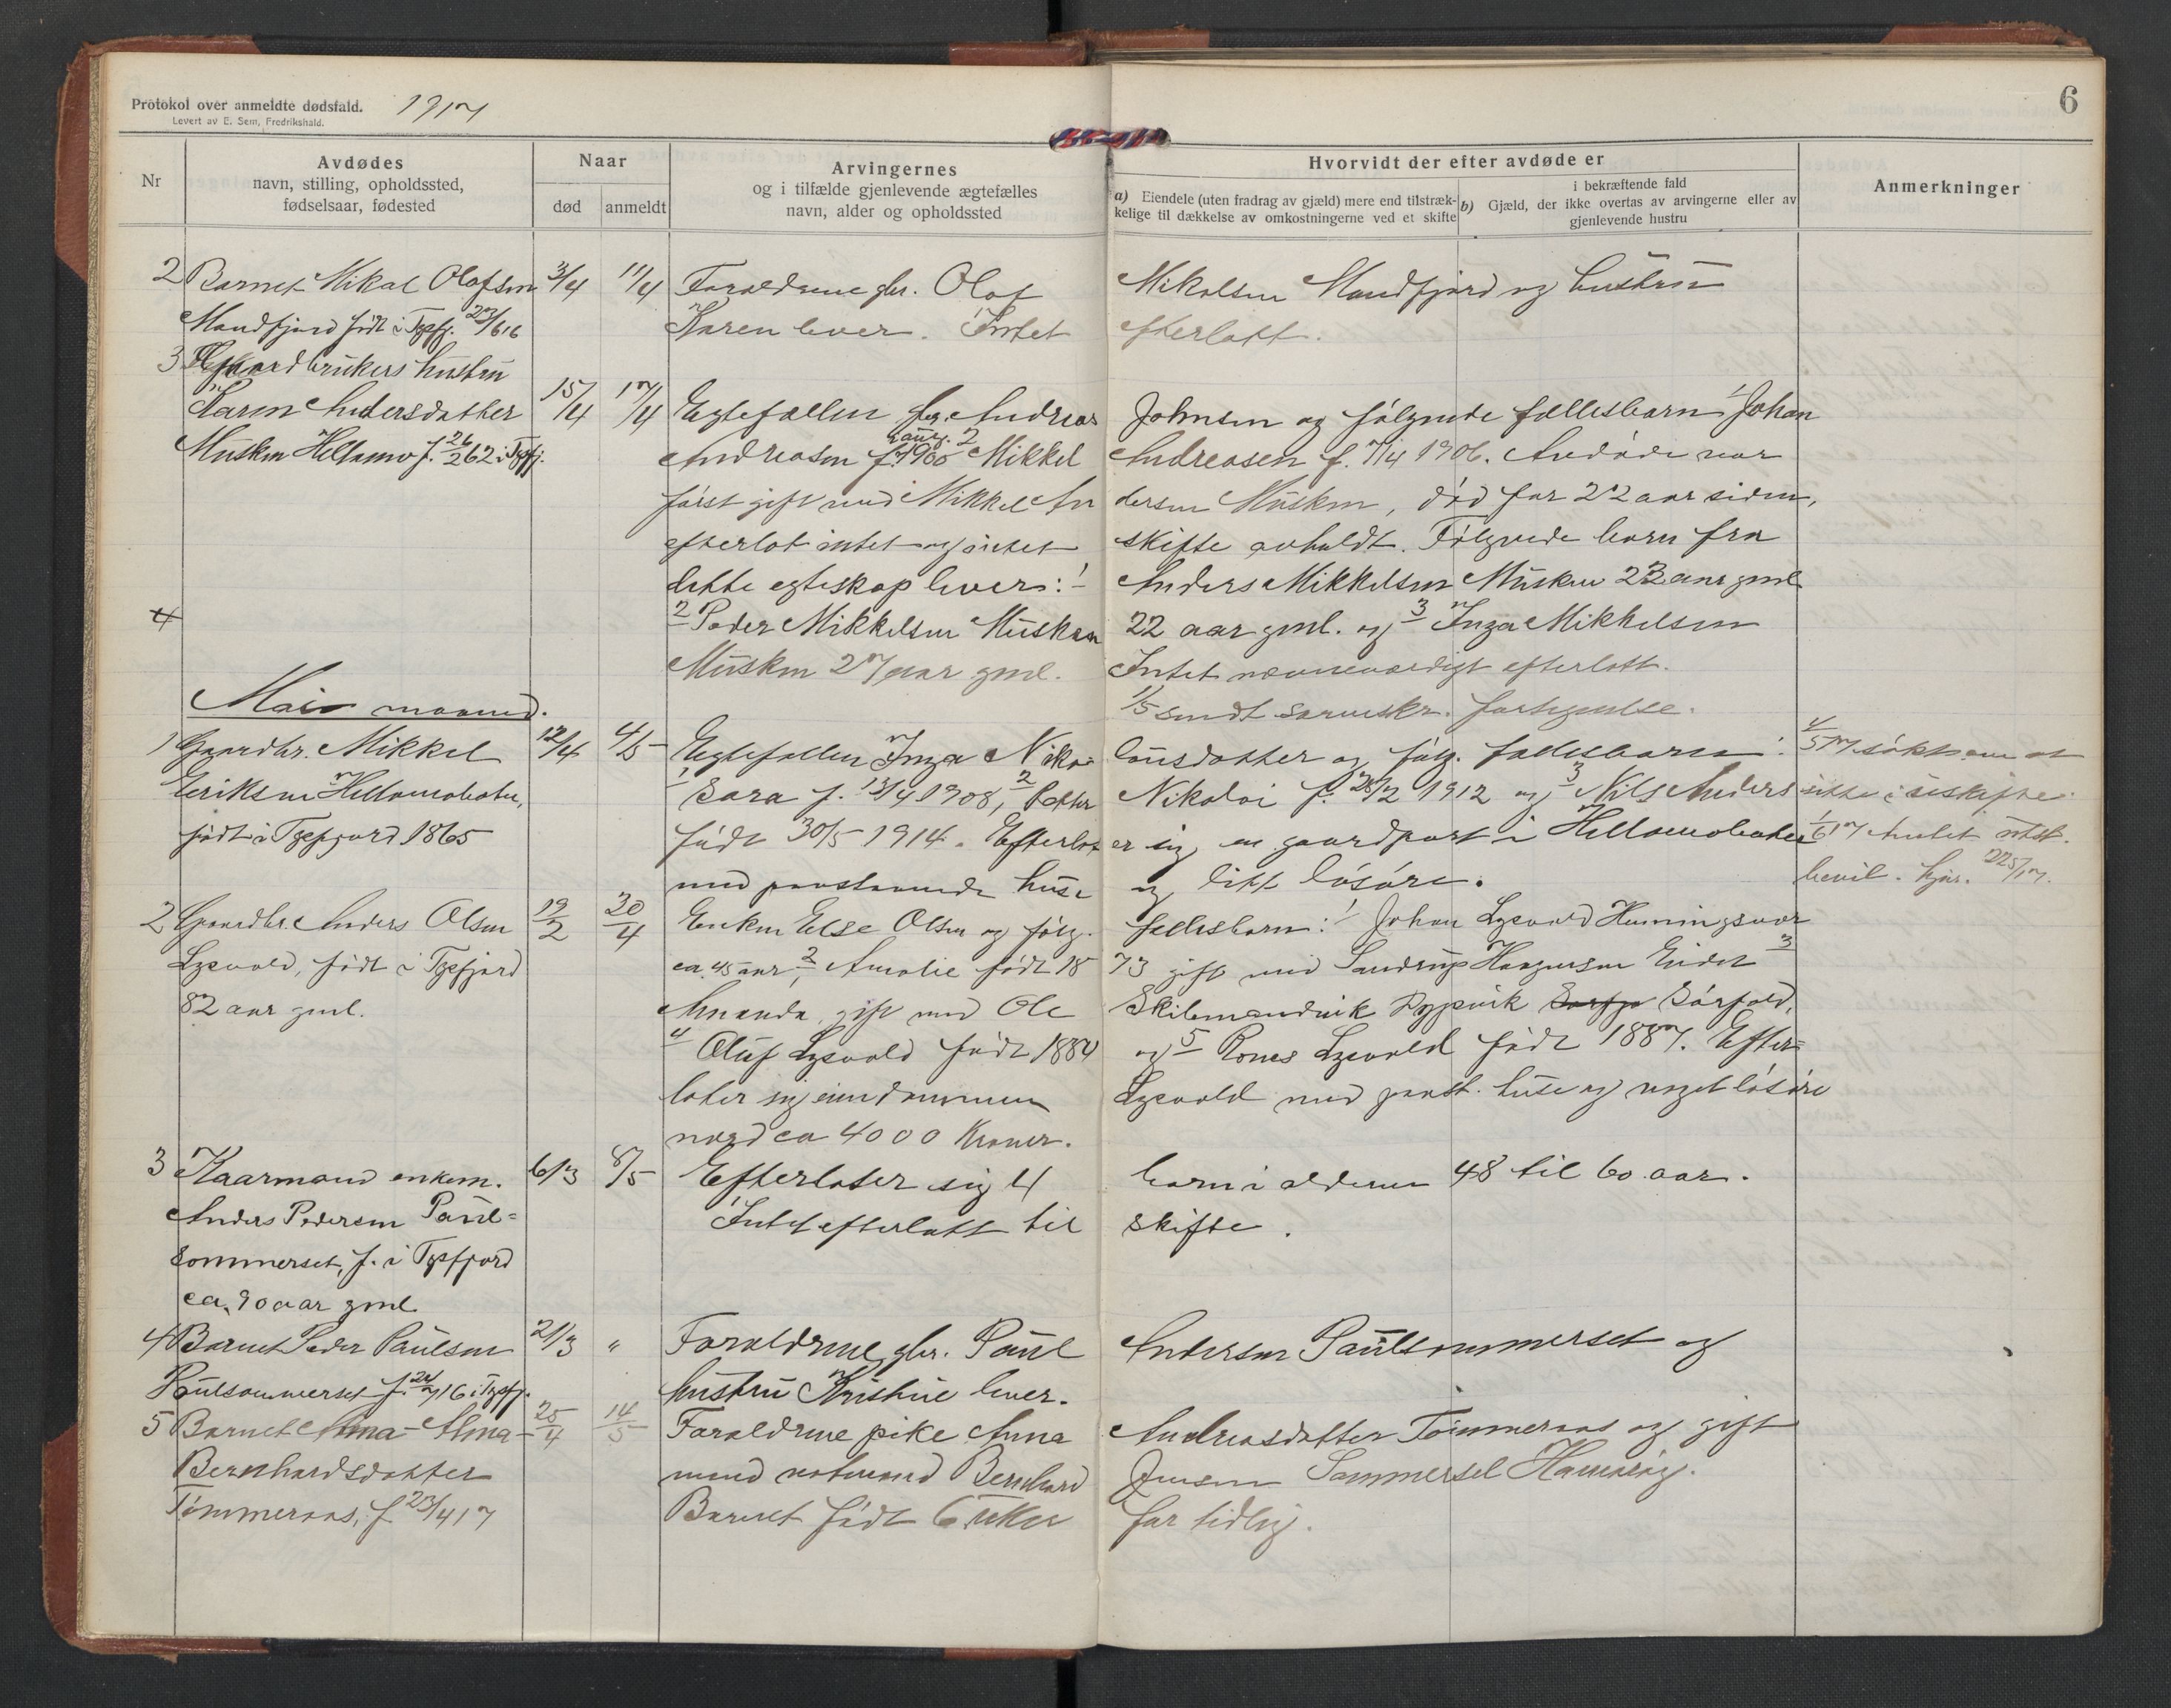 Protokol over anmeldte dødsfald. 1917
Levert av E. Sem, Fredrikshald.
6
Nr
Avdødes
navn, stilling, opholdssted,
fødselsaar, fødested
Naar
død
anmeldt
Arvingernes
og i tilfælde gjenlevende ægtefælles
navn, alder og opholdssted
Hvorvidt der efter avdøde er
a) Eiendele (uten fradrag av gjæld) mere end tilstræk-
kelige til dækkelse av omkostningerne ved et skifte
i bekræftende fald
b) Gjæld, der ikke overtas av arvingerne eller av
gjenlevende hustru
Anmerkninger
2 Barnet Mikal Olofsen 3/4 11/4 Forældrene gbr. Olof Mikalsen Mandfjord og hustru
Mandfjord født i Tysfj. 27/6 16 Karen lever. Intet efterlatt.
3 Gaardbrukers hustru
Karen Andersdatter 15/4 17/4 Egtefællen gbr. Andreas Johnsen og følgende fællesbarn 1 Johan
Musken Hellamo f. 26/2 62 i Tysfj. Andreasen f. 1900 2 Mikkel Andreasen f. 7/4 1906. Avdøde var
først gift med Mikkel Andersen Musken, død for 22 aar siden,
efterlot intet og intet skifte avholdt. Følgende barn fra
dette egteskap lever: 1 Anders Mikkelsen Musken 23 aar gml
4
2 Peder Mikkelsen Musken 22 aar gml. og 3 Inga Mikkelsen
Musken 27 aar gml. Intet nævneværdigt efterlatt.
Mai maaned.
1/5 sendt fortegnelse.
1 Gaardbr. Mikkel 12/4 4/5 Egtefællen Inga Nikolausdatter og følg. fællesbarn: 4/5 17 søkt om at
Eriksen Hellamobotn, 1 Sara f. 13/4 1908, 2 Petter Nikolai f. 28/2 1912 og 3 Nils Anders sitte i uskifte.
født i Tysfjord 1865 født 30/5 1914. Efterlater sig en gaardpart i Hellamobotn 1/6 17
med paastaaende huse og litt løsøre. bevil.
2 Gaardbr. Anders Olsen 19/2 30/4 Enken Else Olsen og følg. fællesbarn: 1 Johan Lysvold Henningsvær
Lysvold, født i Tysfjord ca. 45 aar, 2 Amalie født 1873 gift med Haagensen Eidet 3
82 aar gml. Amanda, gift med Ole Skilsmandvik Nypvik Sørfold,
4 Oluf Lysvold født 1884 og 5 Rones Lysvold født 1887. Efter-
later sig eiendommen Lysvold med paast. huse og noget løsøre
værd ca 4000 Kroner.
3 Kaarmand enkem. 6/3 8/5 Efterlater sig 4 barn i alderen 48 til 60 aar.
Anders Pedersen Paul- Intet efterlatt til skifte.
sommerset, f. i Tysfjord
ca. 90 aar gml.
4 Barnet Peder Paulsen 21/3 " Forældrene, gbr. Paul Andersen Paulsommerset og
Paulsommerset f. 24/7 16 i Tysfj. hustru Kristine lever.
5 Barnet Anna Alma 25/4 14/5 Forældrene pike Anna Andreasdatter Tømmeraas og gift
Bernhardsdatter mand Bernhard Jensen Sommersel Hamarøy.
Tømmeraas, f. 23/4 17 Barnet født 6 uker for tidlig.